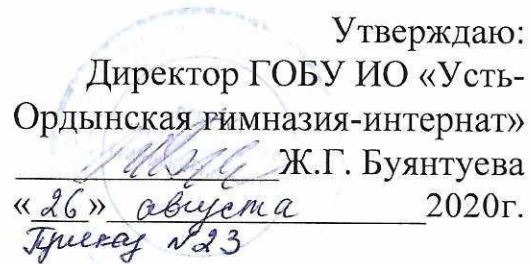 Утверждаю:
Директор ГОБУ ИО «Усть-
Ордынская гимназия-интернат»
Ж.Г. Буянтуева
«26» августа 2020г.
Приказ №23